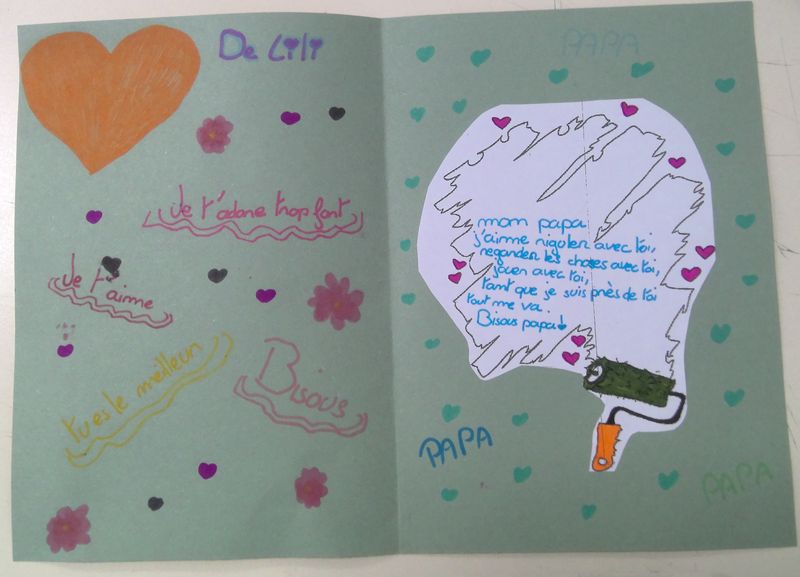 De Lili
Je t'adore trop fort
Je t'aime
tu es le meilleur
Bisous
PAPA
mom papa
j'aime rigoler avec toi,
regarder les choses avec toi,
jouer avec toi,
tant que je suis près de toi
tout me va.
Bisous papa!
PAPA
PAPA